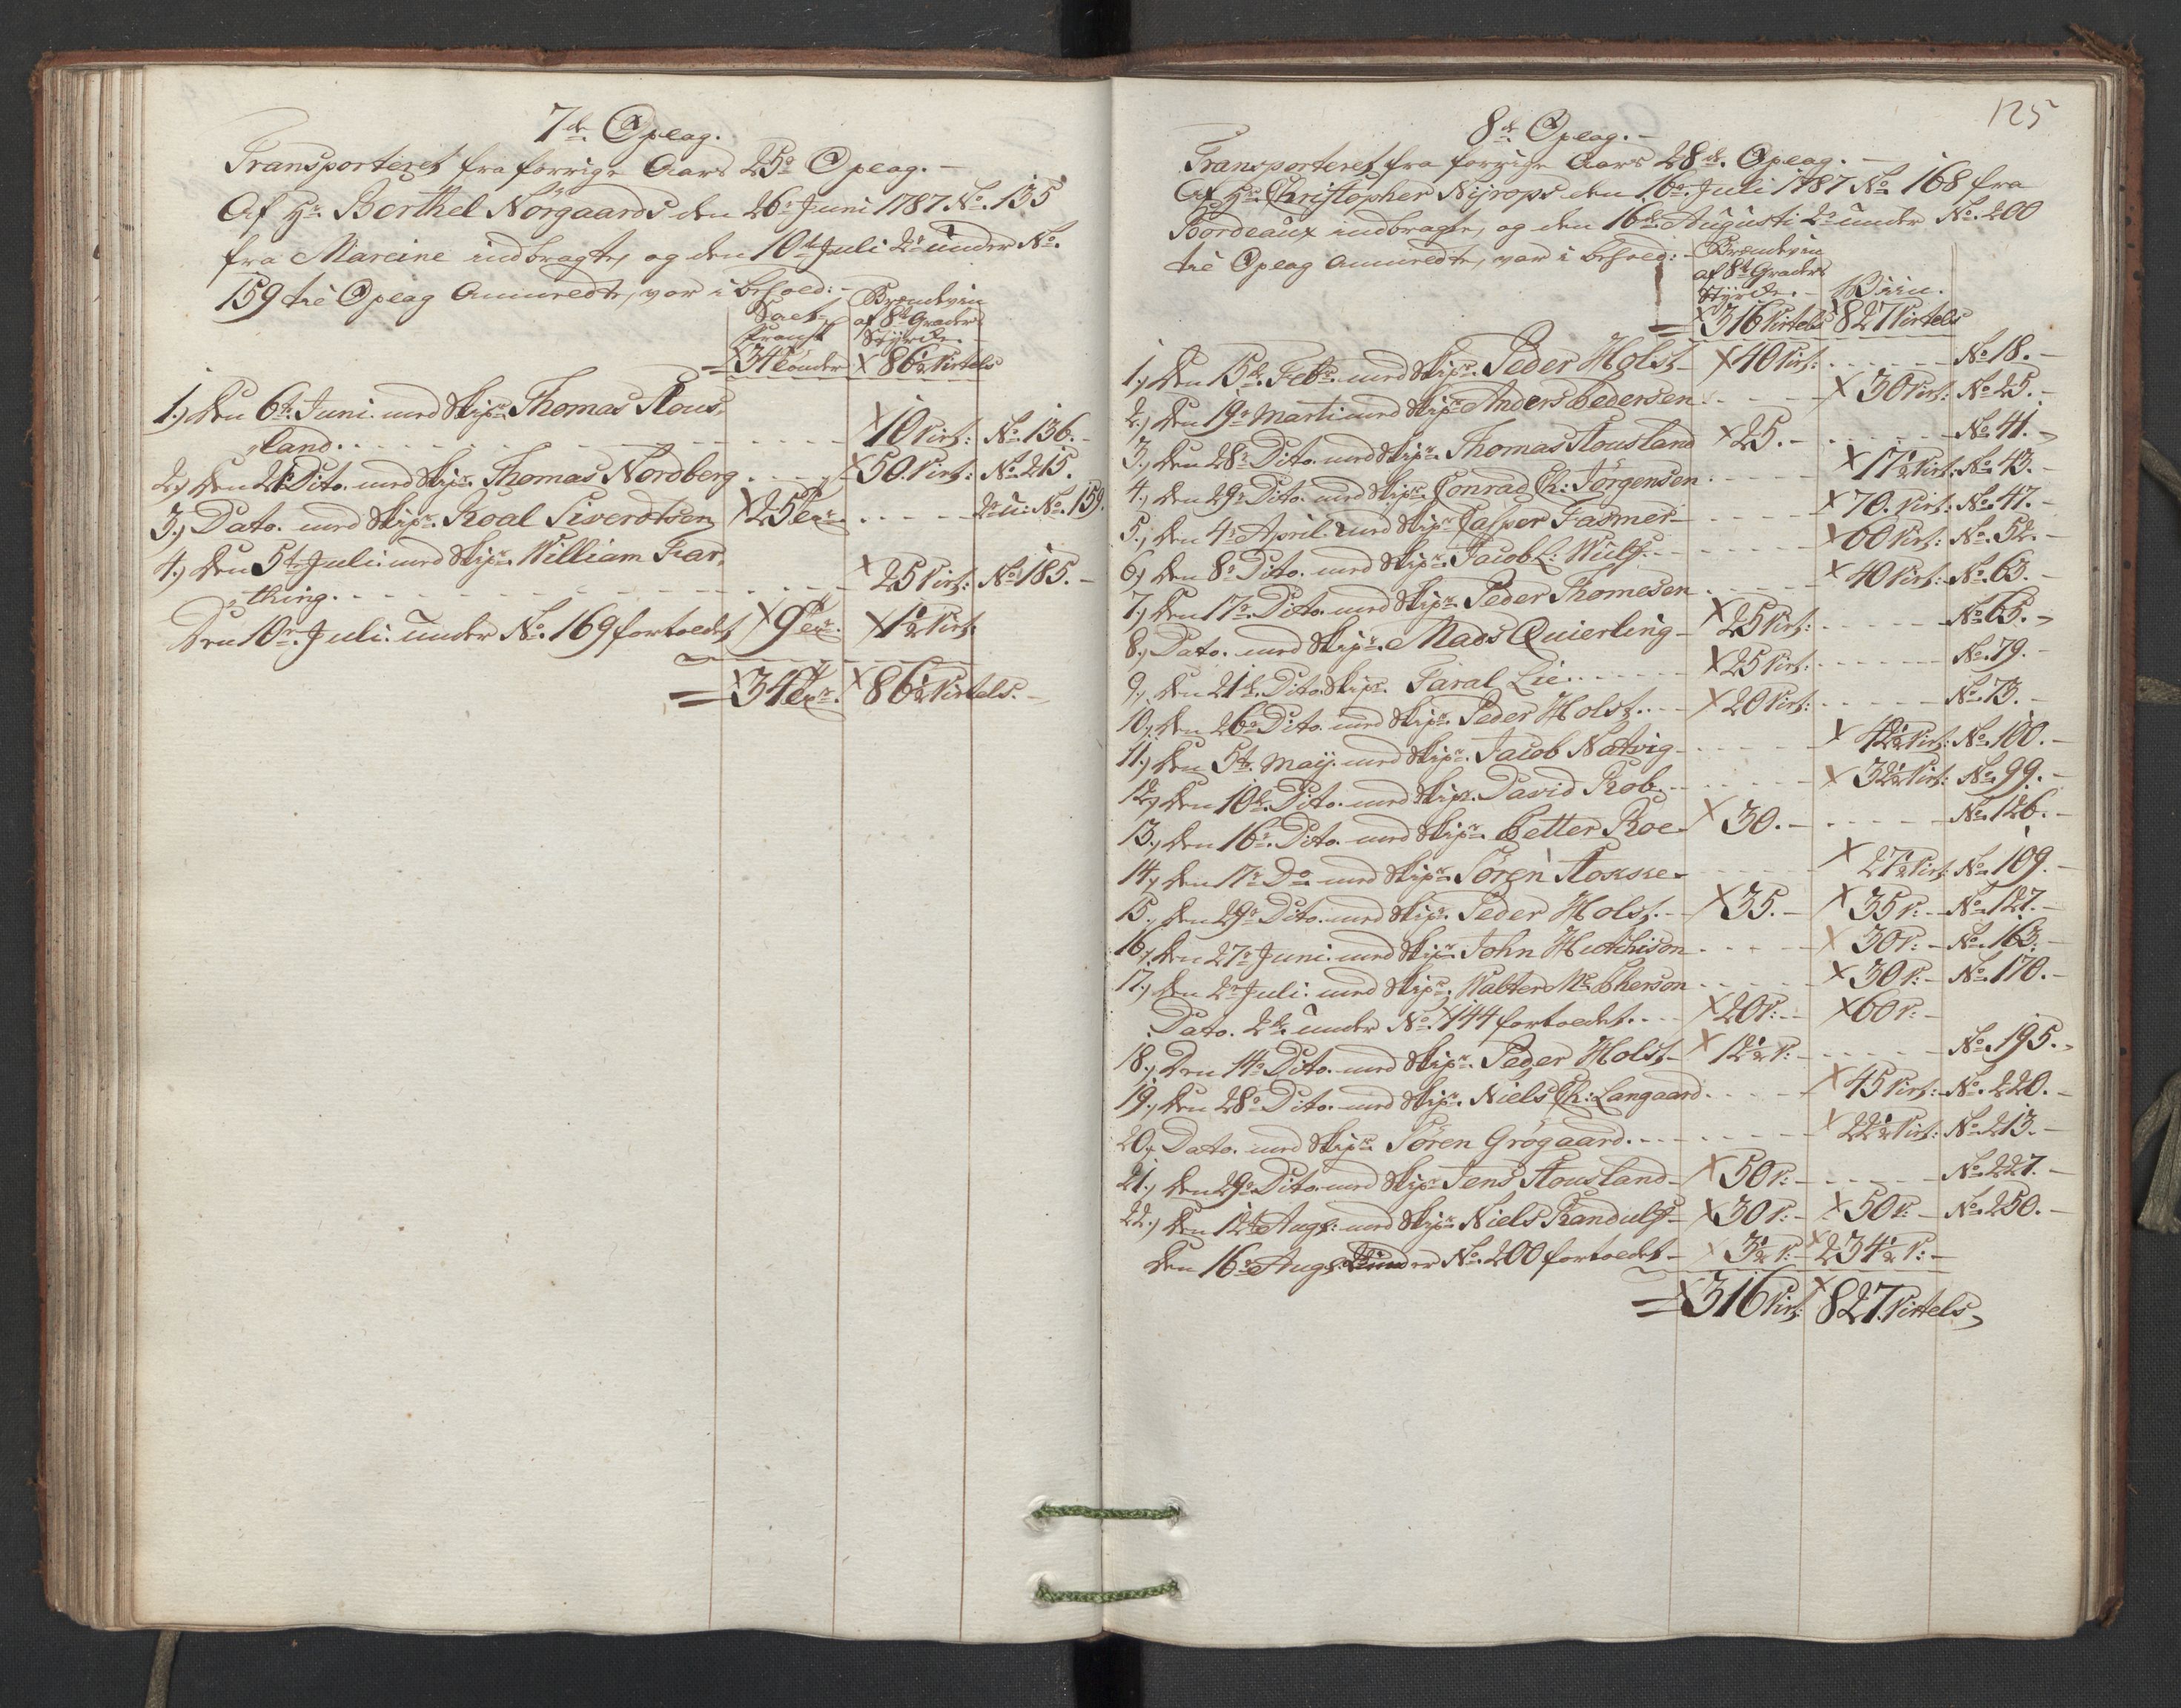 7de Oplag.
Transporteret fra forrige Aars 25de Oplag. —
Af Hr. Berthel Nørgaards den 26de Juni 1787 No. 135
fra Mareine indbragte, og den 10de Juli do under No.
159 til Oplag Anmeldte, var i behold: —
Salt fransk
Brændeviin af 8te Graders Styrke.
= 34 Tønder × 86½ Virtels
1.) den 6te Juni med Skipr. Thomas Stous=
land. × 10 Virt: No. 136. —
2.) den 21de Dito. med Skipr. Thomas Nordberg × 50. Virt: No. 215.
3.) Dato. med Skipr. Roal Siverdtsen × 25 Tr. do u: No. 159.
4.) den 5te Juli med Skipr. William Far=
thing. × 25 Virt: No. 185. —
Den 10de Juli under No. 169 fortoldet × 9 Tr. × 1½ Virt.
= × 34 Tr. × 86½ Virtels. —
125
8de Oplag. —
Transporteret fra forrige Aars 28de Oplag. —
Af Hr. Christopher Nyrops den 16de Juli 1787 No. 168 fra
Bordeaux indbragte, og den 16de Augusti do under No. 200
til Oplag Anmeldte, var i behold: —
Brændeviin af 8te Graders Styrke. — Viin.
= × 316 Virtels 827 Virtels
1.) den 15de Febr. med Skipr. Peder Holst — × 40 Virt: No. 18. —
2.) den 19de Marti med Skipr. Anders Pedersen × 30 Virt: No. 25. —
3.) den 28de Dito. med Skipr. Thomas Stousland × 25. — No. 41. —
4.) den 29de Dito. med Skipr. Conrad Ch: Jørgensen × 17½ Virt: No. 43. —
5.) den 4de April med Skipr. Casper Fasmer — × 70. Virt: No. 47. —
6.) den 8de Dito. med Skipr. Jacob L: Wulf × 60 Virt: No. 52. —
7.) den 17de Dito. med Skipr. Peder Thomesen × 40 Virt: No. 63. —
8.) Dato. med Skipr. Mads Quierling — × 25 Virt: No. 65. —
9.) den 21de Dito. Skipr. Taral Lie × 25 Virt: No. 79. —
10.) den 26de Dito. med Skipr. Peder Holst × 20 Virt: No. 73. —
11.) den 5te Maij med Skipr. Jacob Natvig × 42½ Virt: No. 100. —
12.) den 10de Dito. med Skipr. David Rob × 32½ Virt: No. 99. —
13.) den 16de Dito. med Skipr. Petter Roe × 30. — No. 126. —
14.) den 17de Do. med Skipr. Søren Stoxske × 27½ Virt: No. 109. —
15.) den 29de Dito. med Skipr. Peder Holst × 35. — × 35 V: — No. 127. —
16.) den 27de Juni med Skipr. John Hutchison × 30 V: — No. 163. —
17.) den 2de Juli med Skipr. Walter Mc Pherson × 30 V: — No. 170. —
Dato. do under No. 144 fortoldet × 20 V: × 60 V: —
18.) Den 14de Dito. med Skipr. Peder Holst — × 12½ V: No. 195. —
19.) den 28de Dito. med Skipr. Niels Ch: Langaard × 45 Virt: No. 220. —
20.) Dato. med Skipr. Søren Grøgaard × 22½ Virt: No. 213. —
21.) den 29de Dito med Skipr. Jens Stousland × 50 V: No. 227. —
22.) den 12de Augs: med Skipr. Niels Randulf — × 30 V: — × 50 V: — No. 250. —
den 16de Augs: under No. 200 fortoldet — × 3½ V: × 234½ V: —
= × 316 Virt: × 827. Virtels